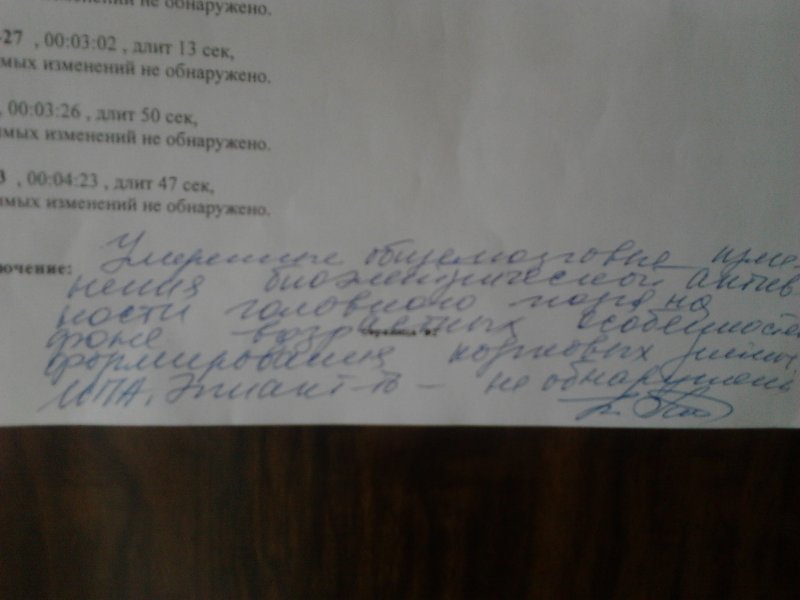 изменений не обнаружено.
-27 , 00:03:02 , длит 13 сек,
имых изменений не обнаружено.
, 00:03:26 , длит 50 сек,
имых изменений не обнаружено.
3 , 00:04:23 , длит 47 сек,
имых изменений не обнаружено.
ючение: Умеренные общемозговые изме-
нения биоэлектрической актив-
ности головного мозга на
фоне возрастных особенностей
формирования корковых
не обнаружено